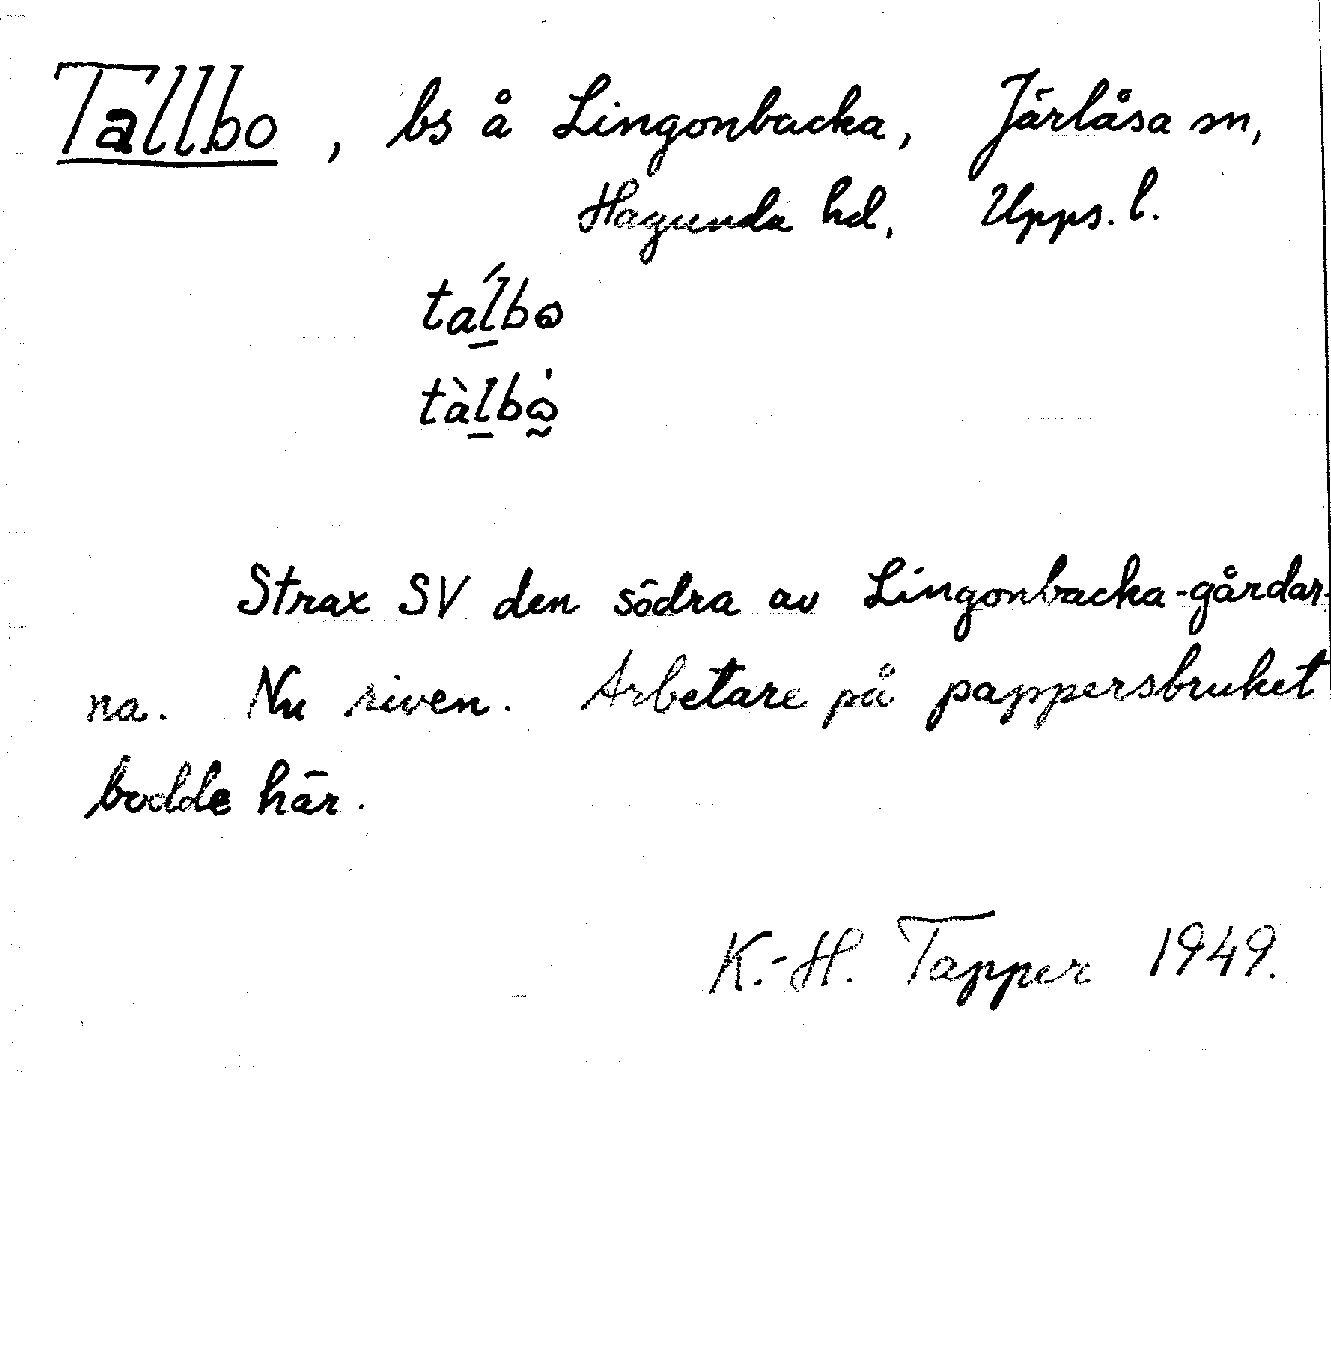 Tallbo, bs å Lingonbacka, Järlåsa sn,
Hagunda hd, Upps. l.
Strax SV den södra av Lingonbacka-gårdar-
na. Nu riven. Arbetare på pappersbruket
bodde här.
K.-H. Tapper 1949.